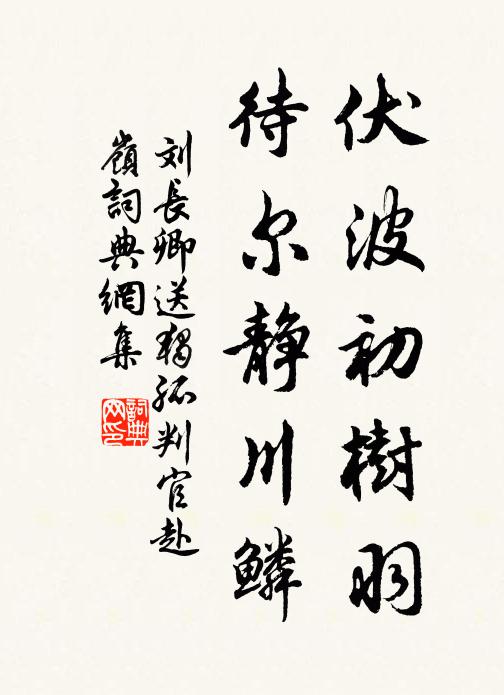 伏波初樹羽
待尔静川鱗
刘長卿送獨孤判官赴
嶺詞典網集
詞典网印